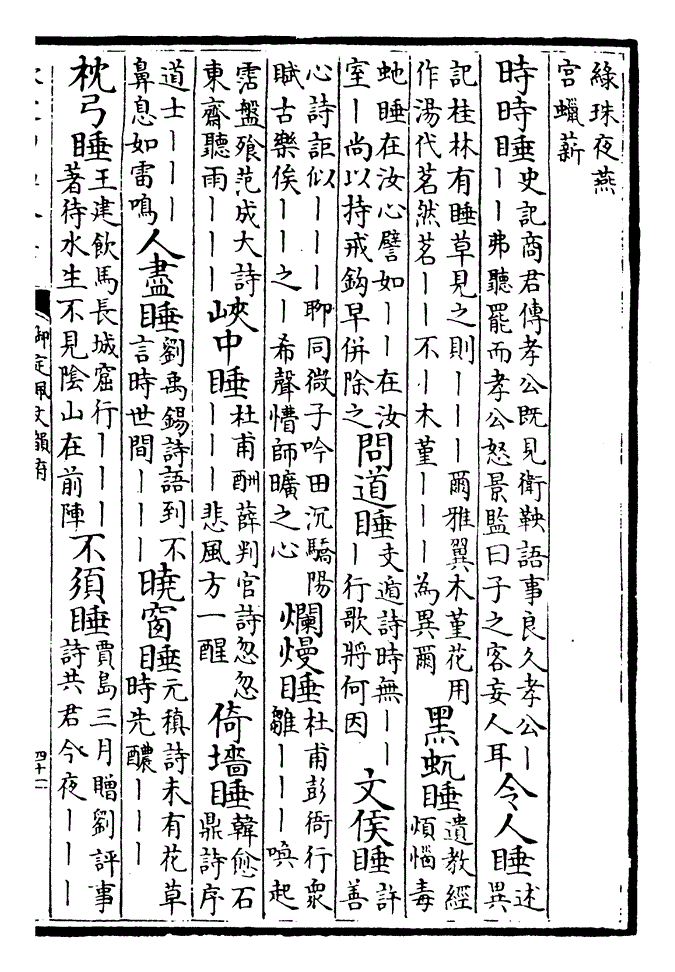 綠珠夜燕
宮蠟薪
時時睡史記商君傳孝公既見衛鞅語事良久孝公丨丨丨弗聽罷而孝公怒景監曰子之客妄人耳令人睡述異
記桂林有睡草見之則丨丨丨爾雅翼木堇花用作湯代茗然茗丨丨不丨木堇丨丨丨為異爾黑蚖睡遺教經煩惱毒
虵睡在汝心譬如丨丨在汝室丨尚以持戒鈎早併除之問道睡支遁詩時無丨丨丨行歌將何因文侯睡許善
心詩詎似丨丨丨聊同微子吟田沉驕陽賦古樂俟丨丨之丨希聲懵師曠之心爛熳睡杜甫彭衙行衆雛丨丨丨喚起
霑盤飱范成大詩東齋聽雨丨丨丨峽中睡杜甫酬薛判官詩忽忽丨丨丨悲風方一醒倚墻睡韓愈石鼎詩序
道士丨丨丨鼻息如雷鳴人盡睡劉禹錫詩語到不言時世間丨丨丨曉窗睡元稹詩未有花草時先醲丨丨丨
枕弓睡王建飲馬長城窟行丨丨丨著待水生不見陰山在前陣不須睡賈島三月贈劉評事詩共君今夜丨丨丨
御定佩文韻府
四十二